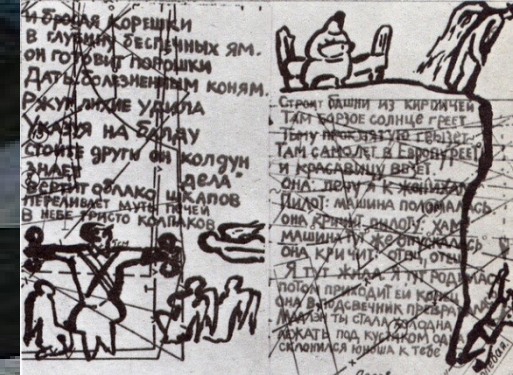 И БРОСАЯ КОРЕШКИ
В ГЛУБИНУ БЕСПЕЧНЫХ ЯМ.
ОН ГОТОВИТ ПОРОШКИ
ДАТЬ БОЛЕЗНЕННЫМ КОНЯМ.
РЖУТ ЛИХИЕ УДИЛА
УКАЗУЯ НА БАЛДУ
СТОЙТЕ ДРУГИ ОН КОЛДУН
ЗНАЕТ ДЕЛА
ВЕРТИТ ОБЛАКО ШКАПОВ
ПЕРЕЛИВАЕТ МУТЬ ПЕЧЕЙ
В НЕБЕ ТРИСТО КОЛПАКОВ
СТРОИТ БАШНИ ИЗ КИРПИЧЕЙ
ТАМ БОРЗОЕ СОЛНЦЕ ГРЕЕТ
ТЬМУ ПРОКЛЯТУЮ
ТАМ САМОЛЕТ В ЕВРОПУ РЕЕТ
И КРАСАВИЦУ ВЕЗЕТ.
ОНА: ЛЕЧУ Я К ЖЕНИХАМ
ПИЛОТ: МАШИНА ПОЛОМАЛАСЬ
ОНА КРИЧИТ ПИЛОТУ: ХАМ
МАШИНА ТУТ ЖЕ ОПУСКАЛАСЬ
ОНА КРИЧИТ: ОТЕЦ, ОТЕЦ
Я ТУТ ЖИЛА. Я ТУТ РОДИЛАСЬ
ПОТОМ ПРИХОДИТ ЕЙ КОНЕЦ
ОНА В ПОДСВЕЧНИК
МАДЛЭН ТЫ СТАЛА ХОЛОДНА
ЛЕЖАТЬ ПОД КУСТИКОМ
СКЛОНИЛСЯ ЮНОША К ТЕБЕ